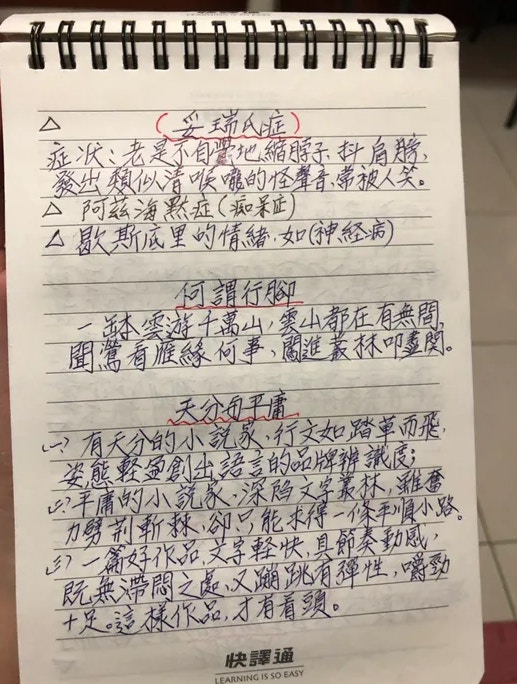 LEARNING IS SO EASY
△ (妥瑞氏症)
症狀:老是不自覺地縮脖子、抖肩膀,
發出類似清喉嚨的怪聲音,常被人笑。
△ 阿茲海默症(痴呆症)
△ 歇斯底里的情緒,如(神經病)
何謂行腳
一缽雲遊千萬山,雲山都在有無間,
聞鶯看雁緣何事,闖進叢林叩盡関。
天分与平庸
(一) 有天分的小説家,行文如踏草而飛,
姿態輕盈創出語言的品牌辨識度;
(二) 平庸的小説家,深陷文字叢林,雖奮
力劈荆斬棘,卻只能求得一條平順小路。
(三) 一篇好作品,文字輕快,具節奏動感,
既無滯悶之處,又蹦跳有彈性,嚼勁
十足。這樣作品,才有看頭。
快譯通
LEARNING IS SO EASY